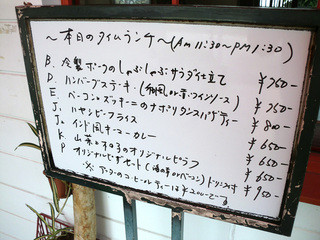 〜本日のタイムランチ〜(AM 11:30〜PM 1:30)
B. 冷製ポークのしゃぶしゃぶサラダ仕立て ¥750-
D. ハンバーグステーキ(和風or赤ワインソース) ¥750-
E. ベーコンとズッキーニのナポリタンスパゲティー ¥800-
J. ハヤシビーフライス ¥650-
Jo. インド風キーマーカレー ¥650-
K. 山菜ときのこのオリジナルピラフ ¥650-
P. オリジナルピザセット(or ベーコン)ドリンク付 ¥950-
※